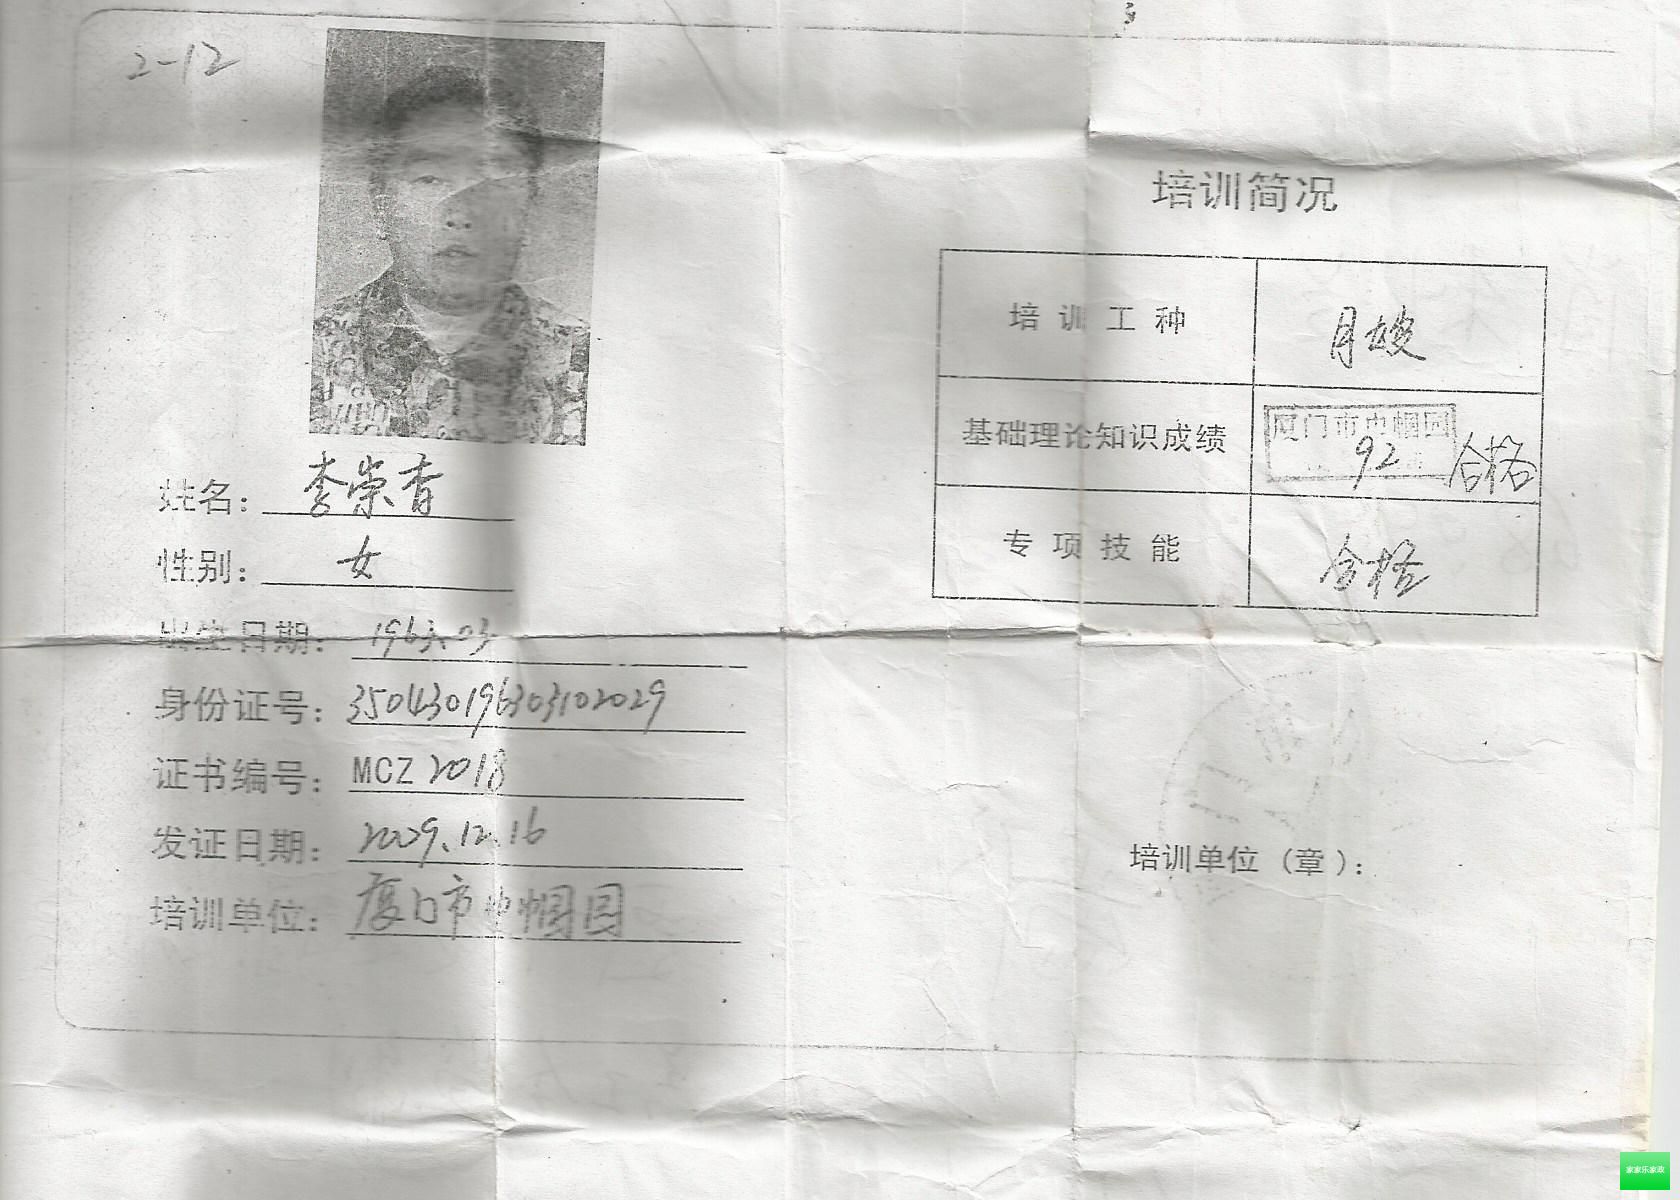 2-12
姓名：李崇香
性别：女
出生日期：1963.03
身份证号：350430196303102029
证书编号：MCZ 2018
发证日期：2009.12.16
培训单位：厦门市巾帼园
培训简况
培训工种 月嫂
厦门市巾帼园
基础理论知识成绩 92 合格
专项技能 合格
培训单位（章）：
家家乐家政